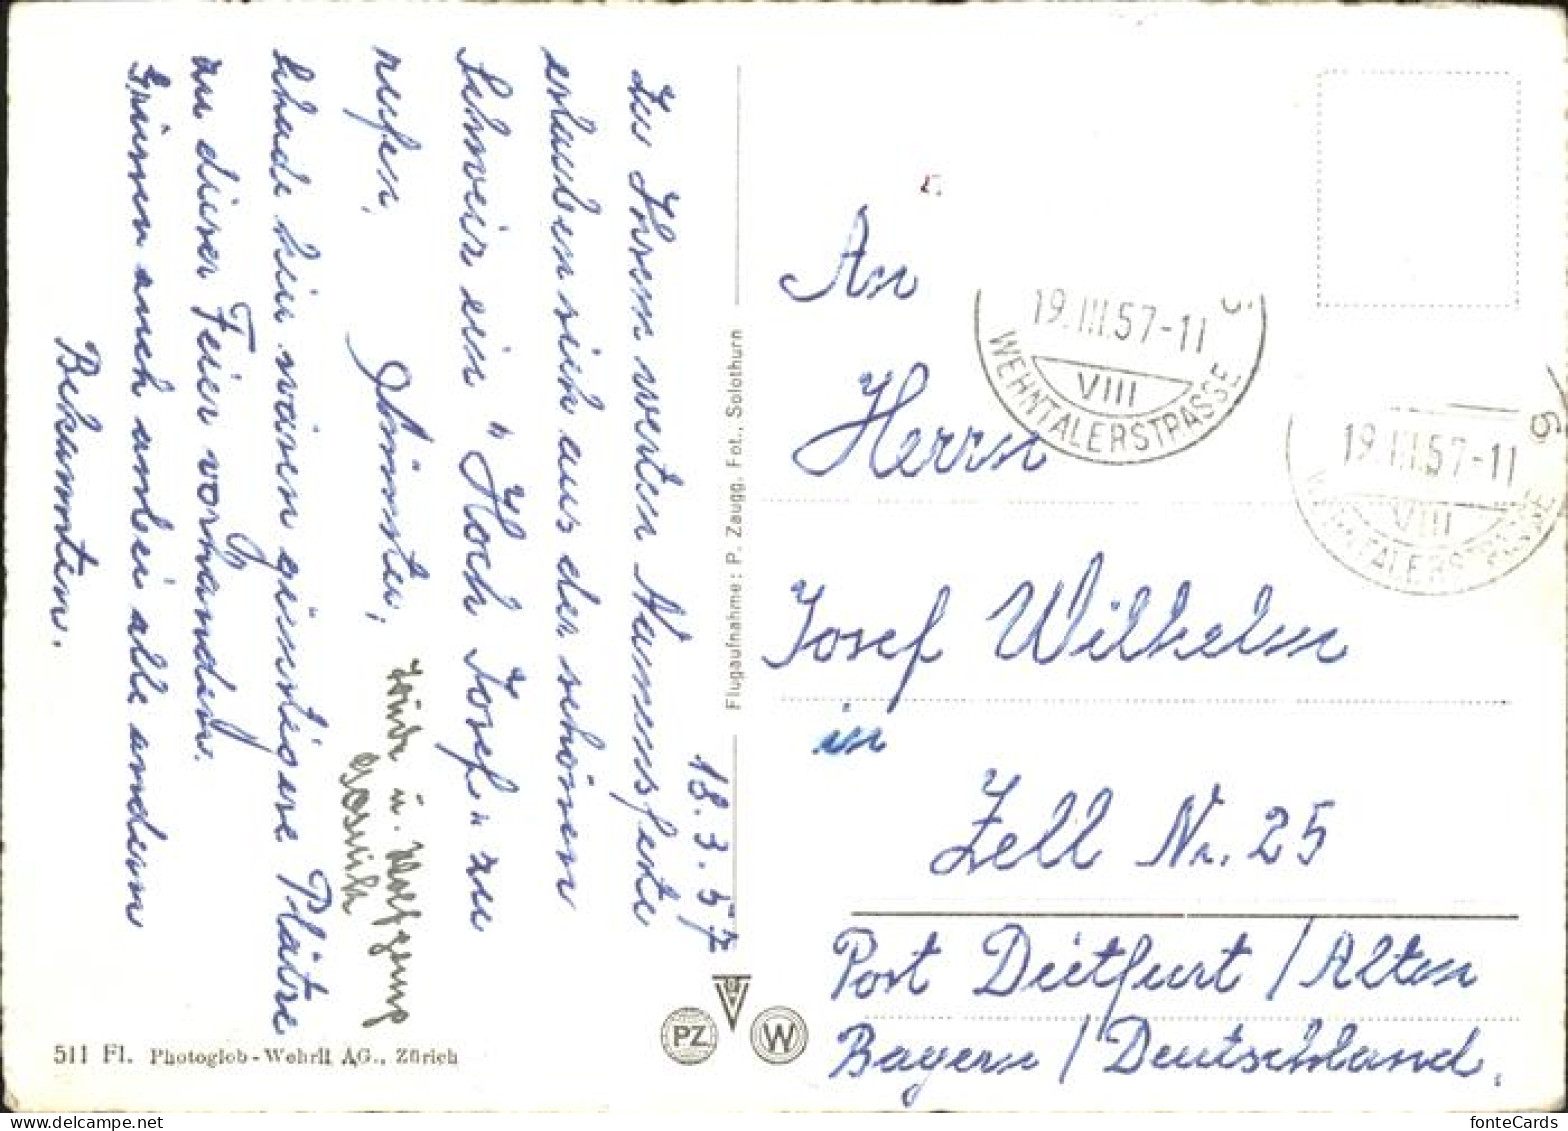 18.3.57
Zu Ihrem werten Namensfeste
erlauben sich aus der schönen
Schweiz ein "Hoch Josef" zu
rufen,
Günster,
u.
hier wären günstigere Plätze
zu dieser Feier vorhanden.
Grüssen auch anbei alle andern
Bekannten.
511 Fl. Photoglob-Wehrli AG., Zürich
Flugaufnahme: P. Zaugg, Fot., Solothurn
PZ
W
An
Herrn
Josef Wilhelm
in
Zell Nr. 25
Post Dietfurt / Altm
Bayern / Deutschland.
19.III.57-11
VIII
WEHNTALERSTRASSE
19.III.57-11
VIII
WEHNTALERSTRASSE
fonteCards